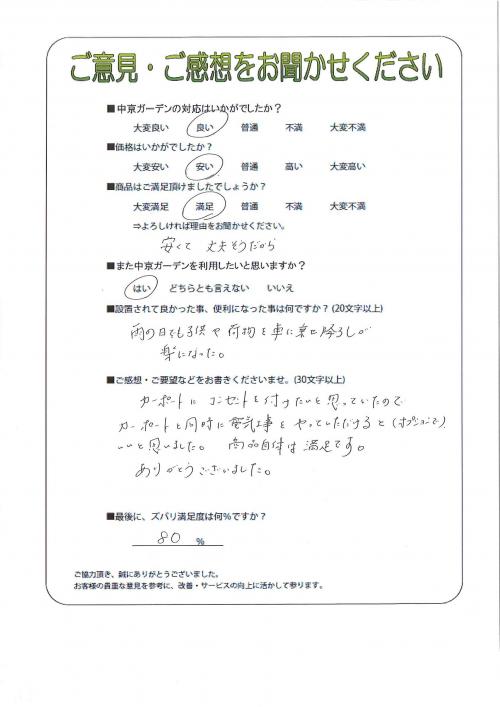 ご意見・ご感想をお聞かせください
■中京ガーデンの対応はいかがでしたか？
大変良い 良い 普通 不満 大変不満
■価格はいかがでしたか？
大変安い 安い 普通 高い 大変高い
■商品はご満足頂けましたでしょうか？
大変満足 満足 普通 不満 大変不満
⇒よろしければ理由をお聞かせください。
安くて 丈夫そうだから
■また中京ガーデンを利用したいと思いますか？
はい どちらとも言えない いいえ
■設置されて良かった事、便利になった事は何ですか？(20文字以上)
雨の日でも子供や荷物を車に乗せ降ろしが
楽になった。
■ご感想・ご要望などをお書きくださいませ。(30文字以上)
カーポートにコンセントを付けたいと思っていたので
カーポートと同時に電気工事をやっていただけると(オプションで)
いいと思いました。 商品自体は満足です。
ありがとうございました。
■最後に、ズバリ満足度は何％ですか？
80 ％
ご協力頂き、誠にありがとうございました。
お客様の貴重な意見を参考に、改善・サービスの向上に活かして参ります。